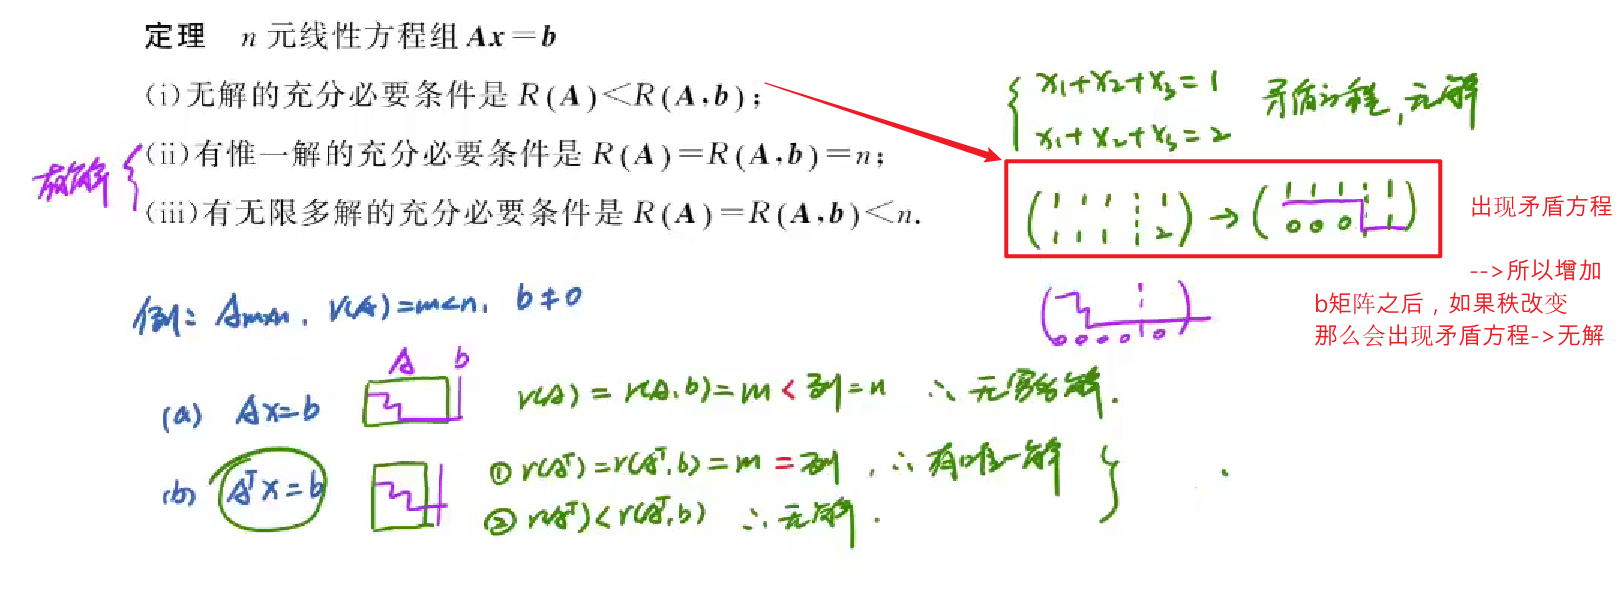 定理 n 元线性方程组 Ax=b
(i)无解的充分必要条件是 R(A)<R(A,b);
(ii)有惟一解的充分必要条件是 R(A)=R(A,b)=n;
(iii)有无限多解的充分必要条件是 R(A)=R(A,b)<n.
有解
x₁+x₂+x₃=1
x₁+x₂+x₃=2
矛盾方程,无解
(1 1 1 ¦ 1
1 1 1 ¦ 2) → (1 1 1 ¦ 1
0 0 0 ¦ 1)
出现矛盾方程
-->所以增加
b矩阵之后，如果秩改变
那么会出现矛盾方程->无解
0 0 0 0 0
例: Aₘₓₙ, r(A)=m<n, b≠0
A b
(a) Ax=b r(A)=r(A,b)=m<列=n ∴无穷多解.
(b) Aᵀx=b ① r(Aᵀ)=r(Aᵀ,b)=m=列, ∴有唯一解
② r(Aᵀ)<r(Aᵀ,b) ∴无解.